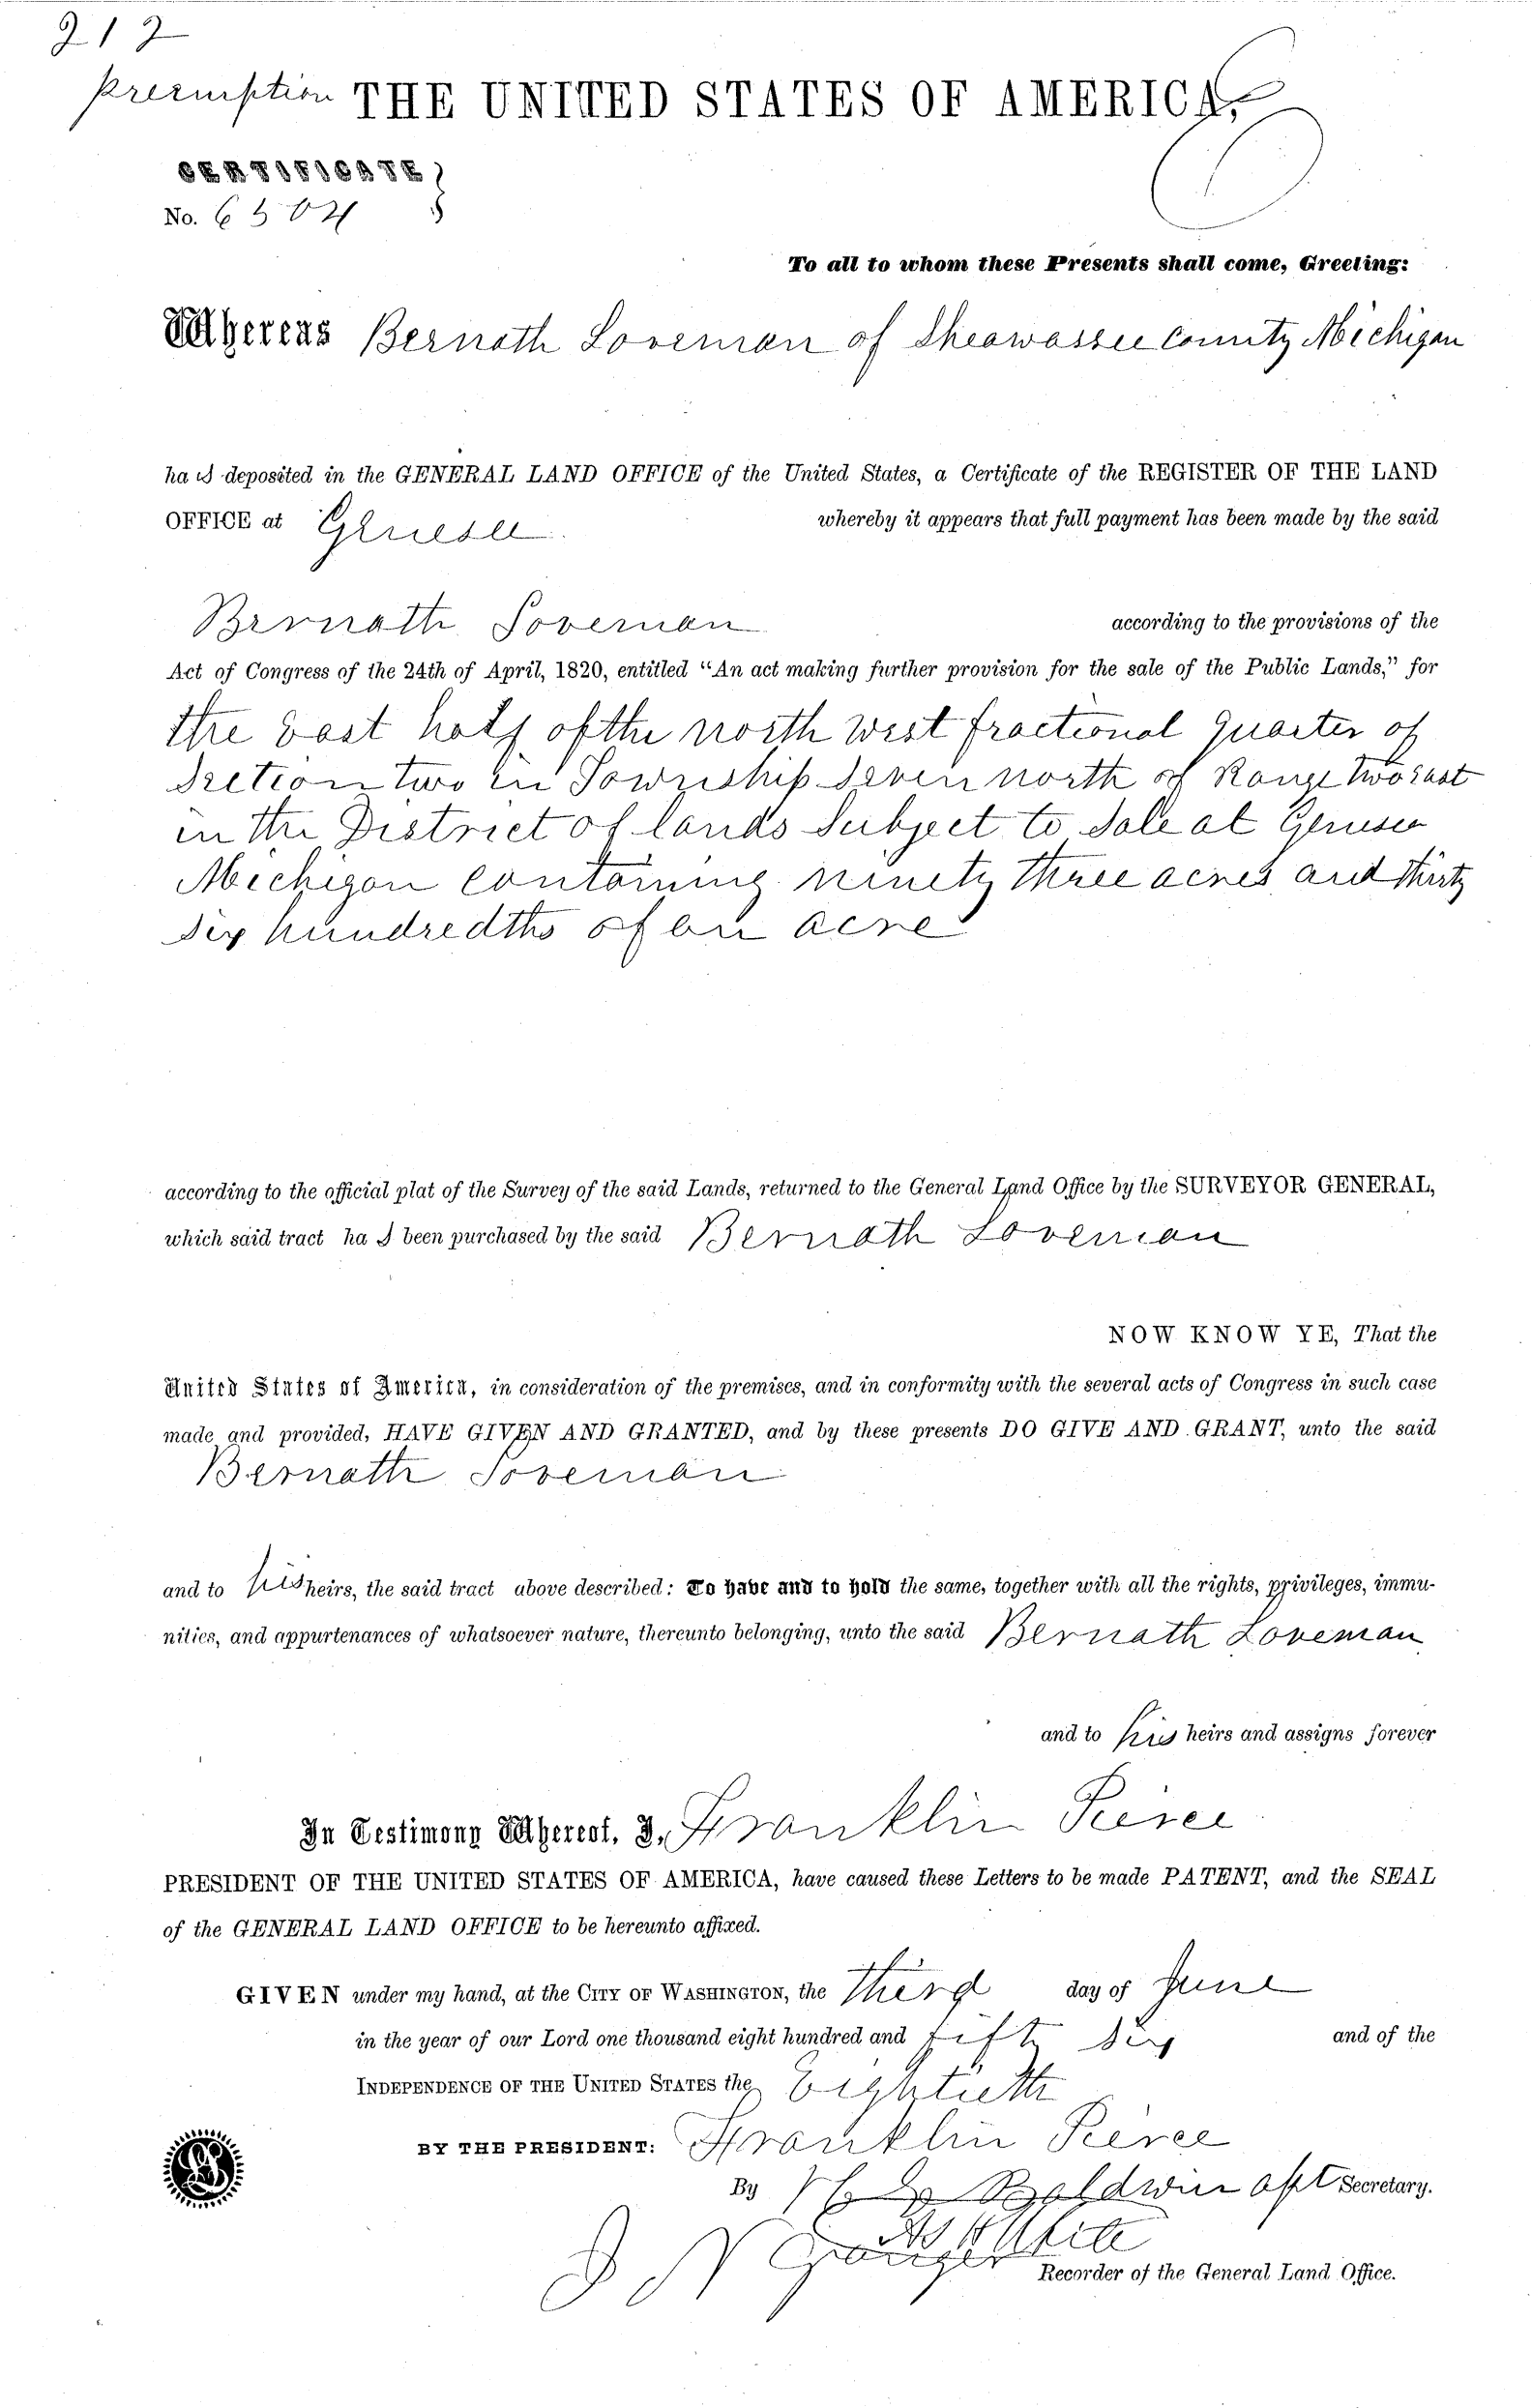 212
Preemption THE UNITED STATES OF AMERICA,
CERTIFICATE
No. 6504
To all to whom these Presents shall come, Greeting:
Whereas Bernath Loveman of Sheawassee County Michigan
has deposited in the GENERAL LAND OFFICE of the United States, a Certificate of the REGISTER OF THE LAND
OFFICE at Genesee whereby it appears that full payment has been made by the said
Bernath Loveman according to the provisions of the
Act of Congress of the 24th of April, 1820, entitled “An act making further provision for the sale of the Public Lands,” for
the East half of the north west fractional quarter of
Section two in Township Seven north of Range two East
in the District of lands Subject to Sale at Genesee
Michigan containing ninety three acres and thirty
six hundredths of an acre
according to the official plat of the Survey of the said Lands, returned to the General Land Office by the SURVEYOR GENERAL,
which said tract has been purchased by the said Bernath Loveman
NOW KNOW YE, That the
United States of America, in consideration of the premises, and in conformity with the several acts of Congress in such case
made and provided, HAVE GIVEN AND GRANTED, and by these presents DO GIVE AND GRANT, unto the said
Bernath Loveman
and to his heirs, the said tract above described: To have and to hold the same, together with all the rights, privileges, immu-
nities, and appurtenances of whatsoever nature, thereunto belonging, unto the said Bernath Loveman
and to his heirs and assigns forever
In Testimony Whereof, I, Franklin Pierce
PRESIDENT OF THE UNITED STATES OF AMERICA, have caused these Letters to be made PATENT, and the SEAL
of the GENERAL LAND OFFICE to be hereunto affixed.
GIVEN under my hand, at the CITY OF WASHINGTON, the third day of June
in the year of our Lord one thousand eight hundred and fifty six and of the
INDEPENDENCE OF THE UNITED STATES the Eightieth
BY THE PRESIDENT: Franklin Pierce
By Baldwin asst Secretary.
J N Granger
Recorder of the General Land Office.